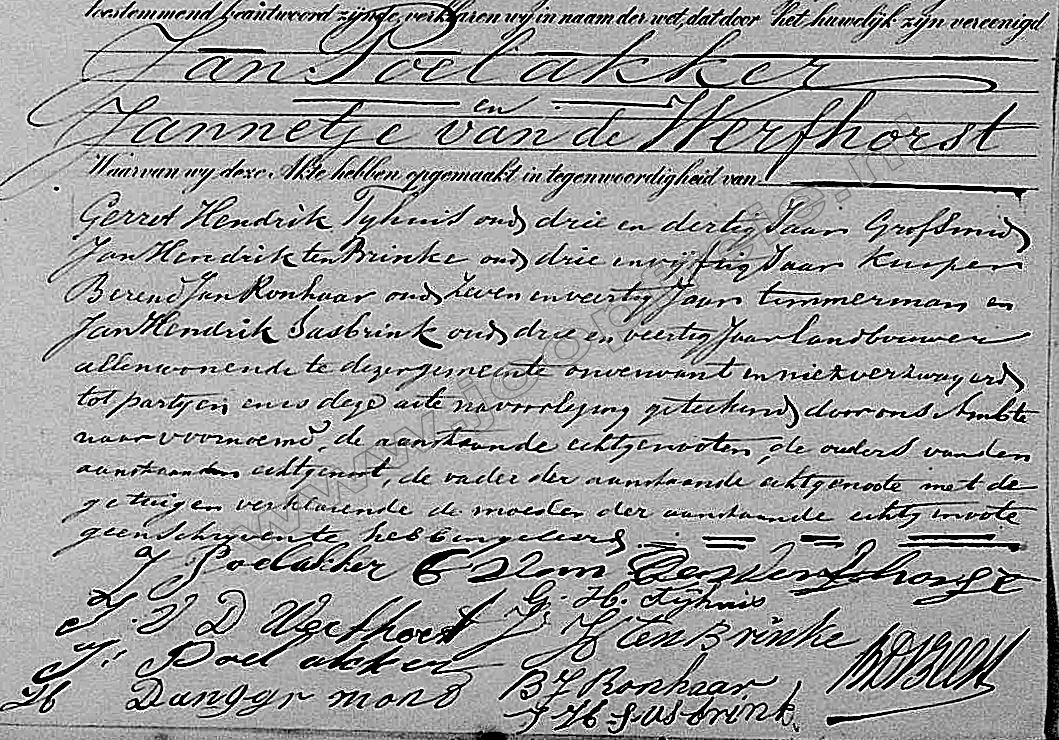 toestemmend beantwoord zijnde, verklaren wij in naam der wet, dat door het huwelijk zijn vereenigd
Jan Poelakker
en
Jannetje van de Werfhorst
Waarvan wij deze Akte hebben opgemaakt in tegenwoordigheid van
Gerret Hendrik Tyhuis oud drie en dertig Jaar Grofsmid
Jan Hendrik ten Brinke oud drie en vijftig Jaar Kuiper
Berend Jan Ronhaar oud zeven en veertig Jaar timmerman en
Jan Hendrik Sasbrink oud drie en veertig Jaar landbouwer
allen wonende te dezer gemeente onverwant en niet verzwagerd
tot partyen en is deze acte na voorlezing geteekend door ons Ambte
naar voornoemd, de aanstaande echtgenooten, de ouders van den
aanstaanden echtgenoot, de vader der aanstaande echtgenoote met de
getuigen verklarende de moeder der aanstaande echtgenoote
geen schryvens te hebben geleerd
J Poelakker
G. H. Tyhuis
J. V D Werfhorst J: H ten Brinke
J: Poelakker
H Danggrmond B J Ronhaar
J H Sasbrink